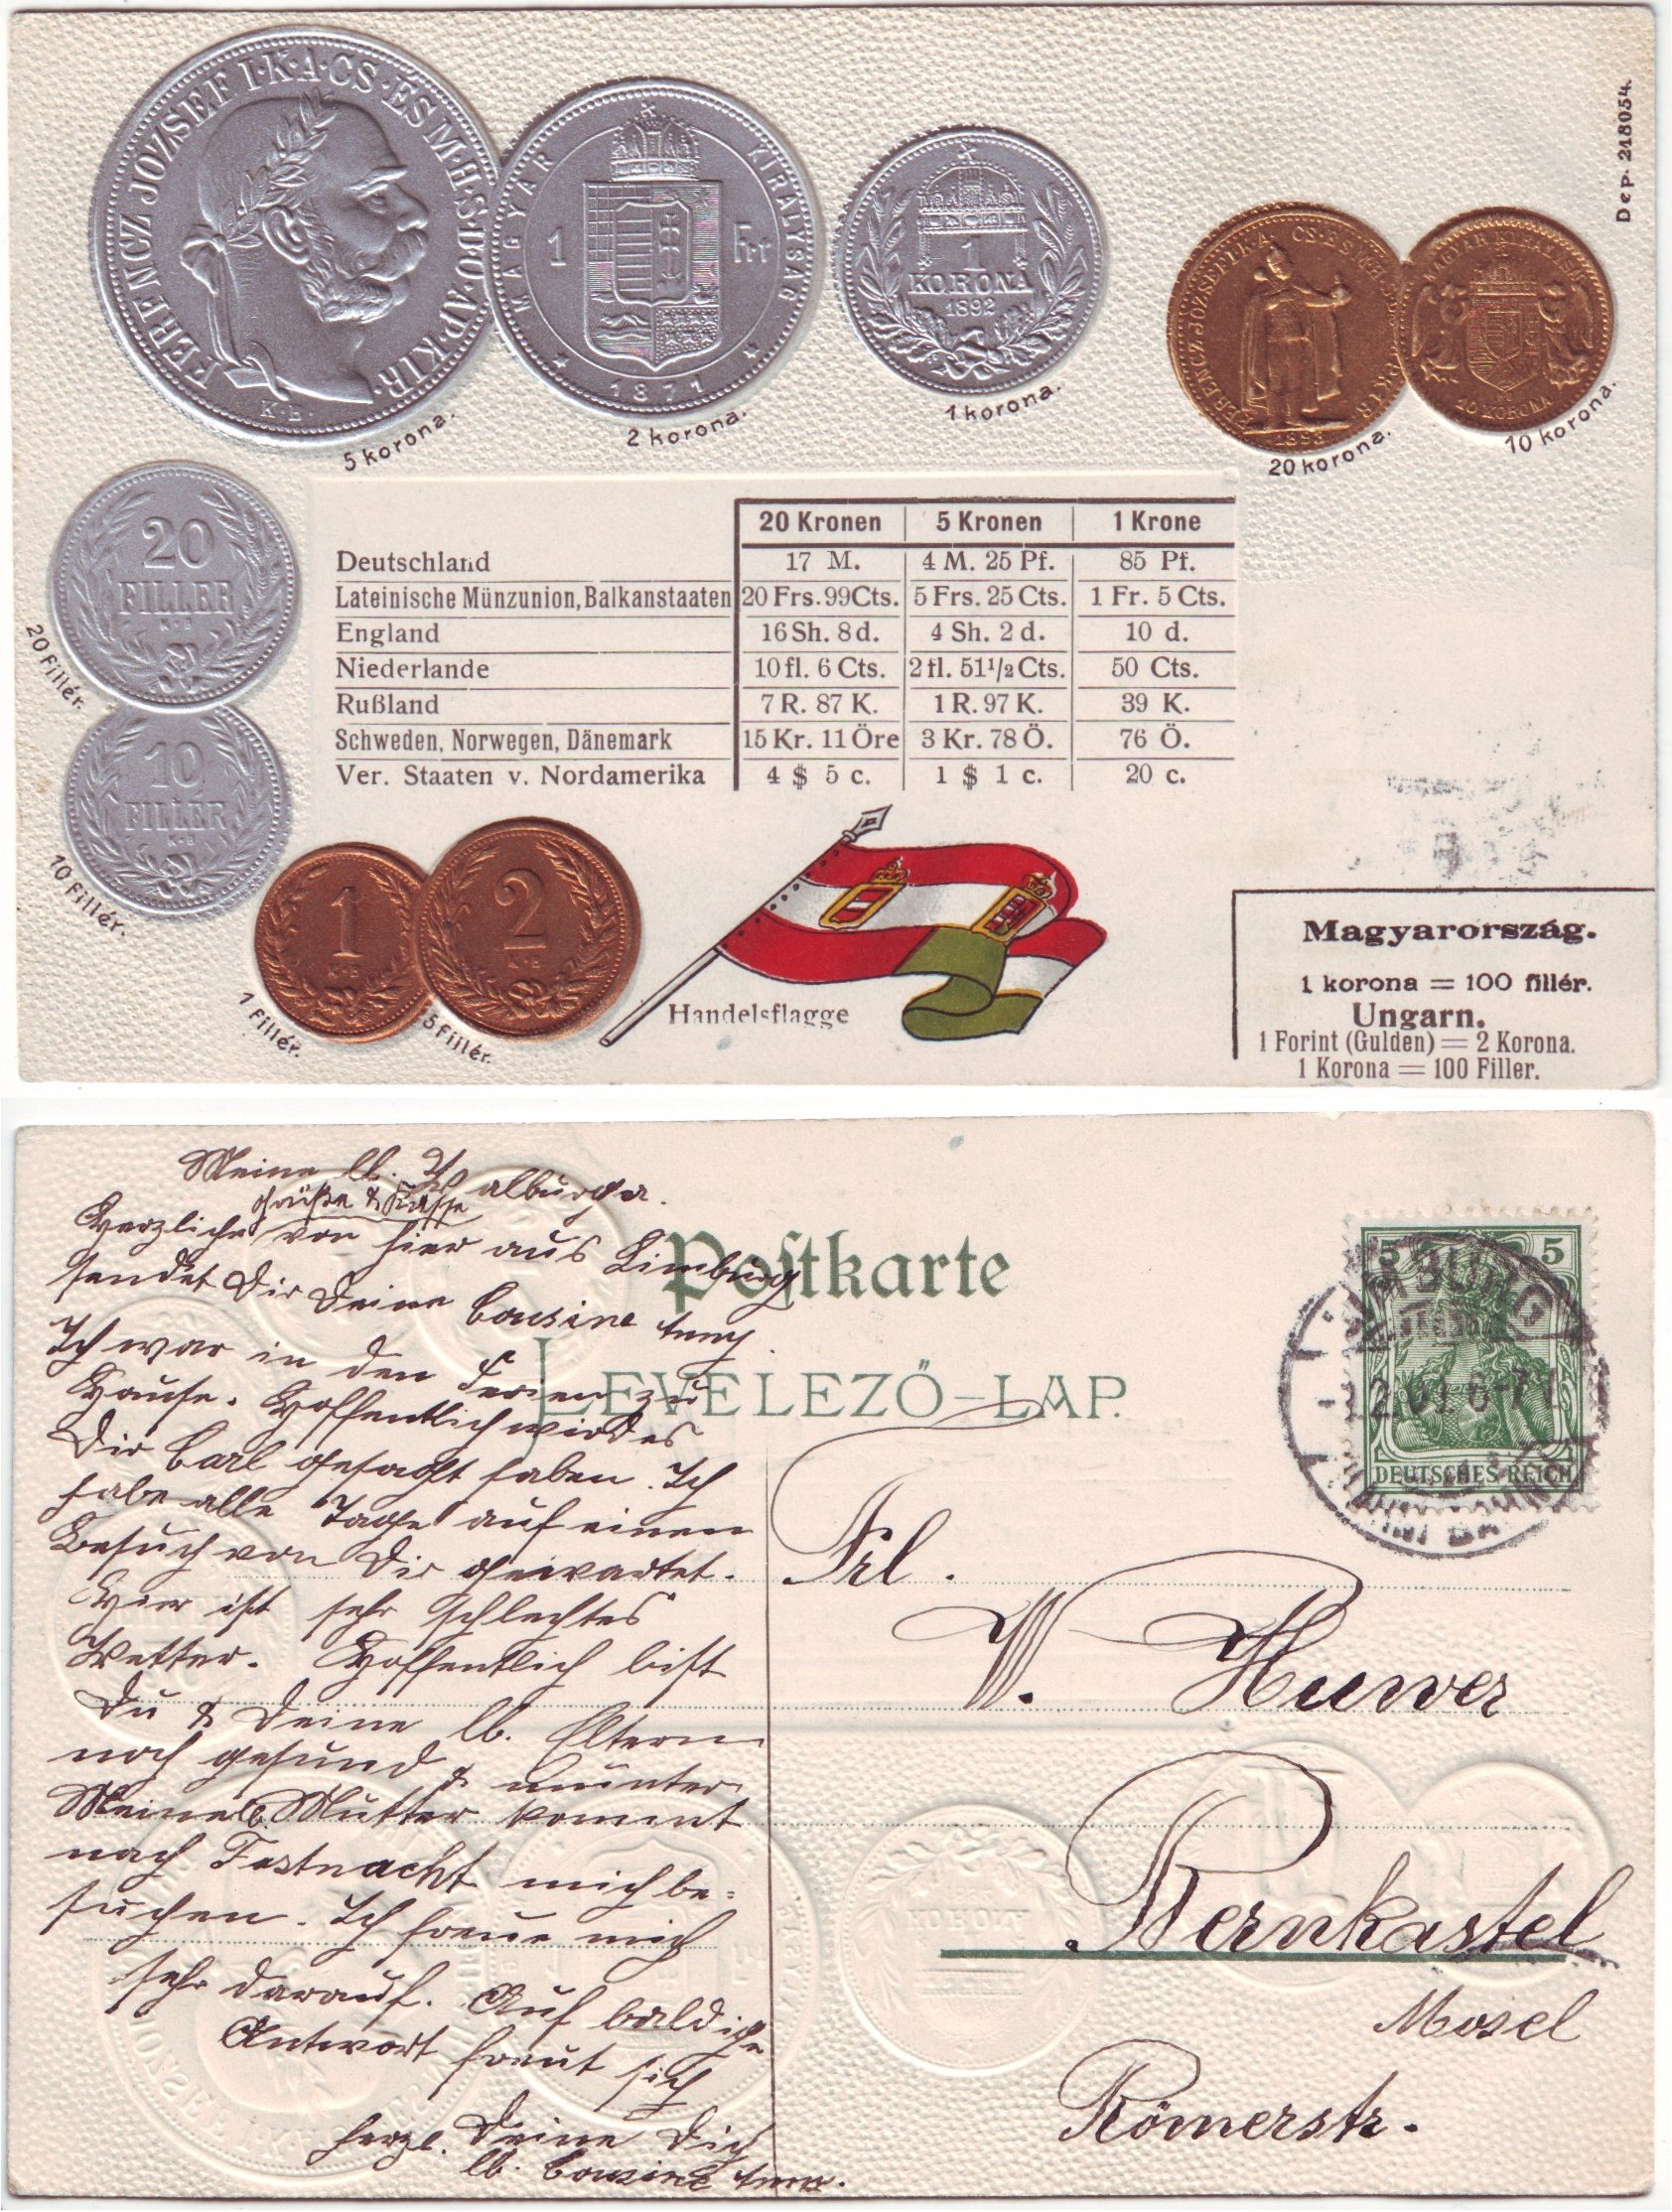 FERENCZ JÓZSEF I·K·A·CS·ÉS M·H·S·D·O·AP·KIR·
K·B·
5 korona.
MAGYAR KIRÁLYSÁG
1 Frt
1871
2 korona.
1
KORONA
1892
1 korona.
FERENCZ JÓZSEF I.K.A. CS.ÉS M.H.
20 korona.
MAGYAR KIRÁLYSÁG
10 KORONA
10 korona.
Dep. 218054.
20
FILLÉR
K·B
20 Fillér.
10
FILLÉR
K·B
10 Fillér.
1
K·B
1 Fillér.
2
K·B
5 Fillér.
20 Kronen 5 Kronen 1 Krone
Deutschland 17 M. 4 M. 25 Pf. 85 Pf.
Lateinische Münzunion, Balkanstaaten 20 Frs. 99 Cts. 5 Frs. 25 Cts. 1 Fr. 5 Cts.
England 16 Sh. 8 d. 4 Sh. 2 d. 10 d.
Niederlande 10 fl. 6 Cts. 2 fl. 51 1/2 Cts. 50 Cts.
Rußland 7 R. 87 K. 1 R. 97 K. 39 K.
Schweden, Norwegen, Dänemark 15 Kr. 11 Öre 3 Kr. 78 Ö. 76 Ö.
Ver. Staaten v. Nordamerika 4 $ 5 c. 1 $ 1 c. 20 c.
Handelsflagge
Magyarország.
1 korona = 100 fillér.
Ungarn.
1 Forint (Gulden) = 2 Korona.
1 Korona = 100 Filler.
Postkarte
LEVELEZŐ-LAP.
Meine lb.
Grüße & Küsse
Herzliche von hier aus Limburg
sendet Dir Deine Cousine
Ich war in den Ferien zu
Hause. Hoffentlich wird es
Dir Carl gesagt haben. Ich
habe alle Tage auf einen
Besuch von Dir gewartet.
Hier ist sehr schlechtes
Wetter. Hoffentlich bist
Du & Deine lb. Eltern
noch gesund & munter
Meine lb. Mutter kommt
nach Fastnacht mich be-
suchen. Ich freue mich
sehr darauf. Auf baldige
Antwort freut sich
herzl. Deine Dich
lb. Cousine
5 5
DEUTSCHES REICH
Frl.
W. Huwer
Bernkastel
Mosel
Römerstr.